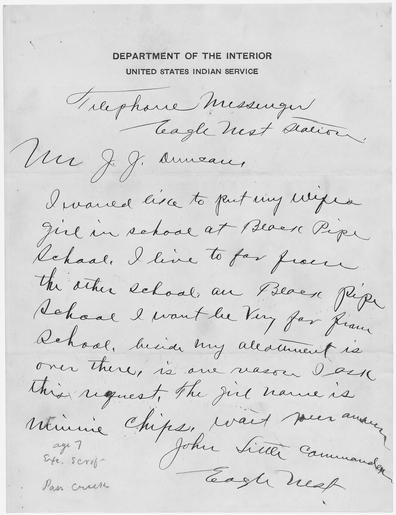 DEPARTMENT OF THE INTERIOR
UNITED STATES INDIAN SERVICE
Telephone Messenger
Eagle Nest Station.
Mr J. J. Duncan,
I would like to put my wife
girl in school at Black Pipe
School. I live to far from
the other school, an Black pipe
School I wont be Very far from
School. beside my allotment is
over there, is one reason I ask
this request. The girl name is
Minnie Chips. want your answer
John Little Commander
Eagle Nest
age 7
Pass Creek